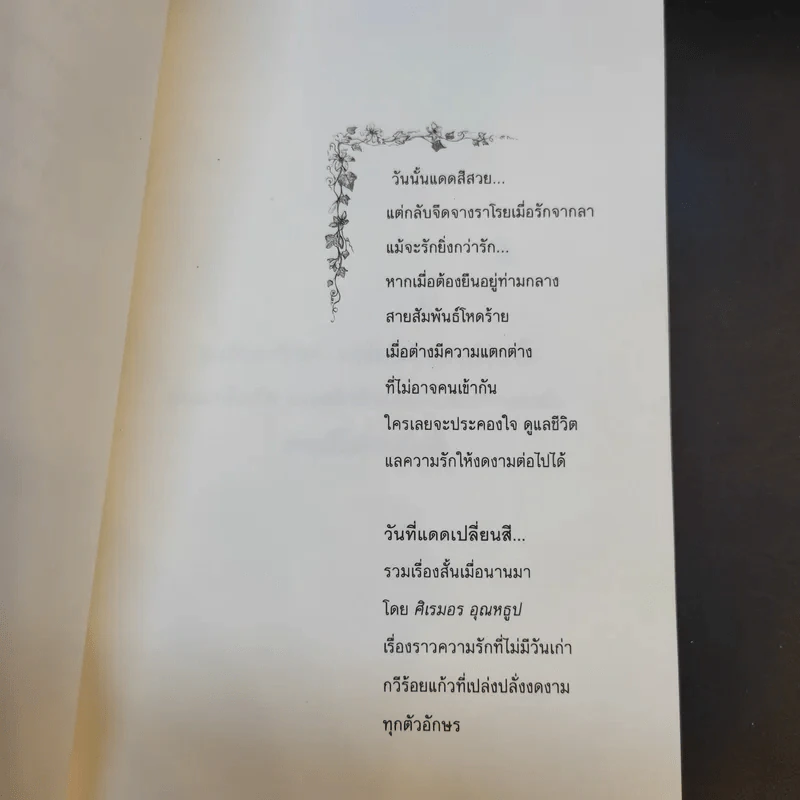 วันนั้นแดดสีสวย...
แต่กลับจืดจางราโรยเมื่อรักจากลา
แม้จะรักยิ่งกว่ารัก...
หากเมื่อต้องยืนอยู่ท่ามกลาง
สายสัมพันธ์โหดร้าย
เมื่อต่างมีความแตกต่าง
ที่ไม่อาจคนเข้ากัน
ใครเลยจะประคองใจ ดูแลชีวิต
แลความรักให้งดงามต่อไปได้
วันที่แดดเปลี่ยนสี...
รวมเรื่องสั้นเมื่อนานมา
โดย ศิเรมอร อุณหธูป
เรื่องราวความรักที่ไม่มีวันเก่า
กวีร้อยแก้วที่เปล่งปลั่งงดงาม
ทุกตัวอักษร